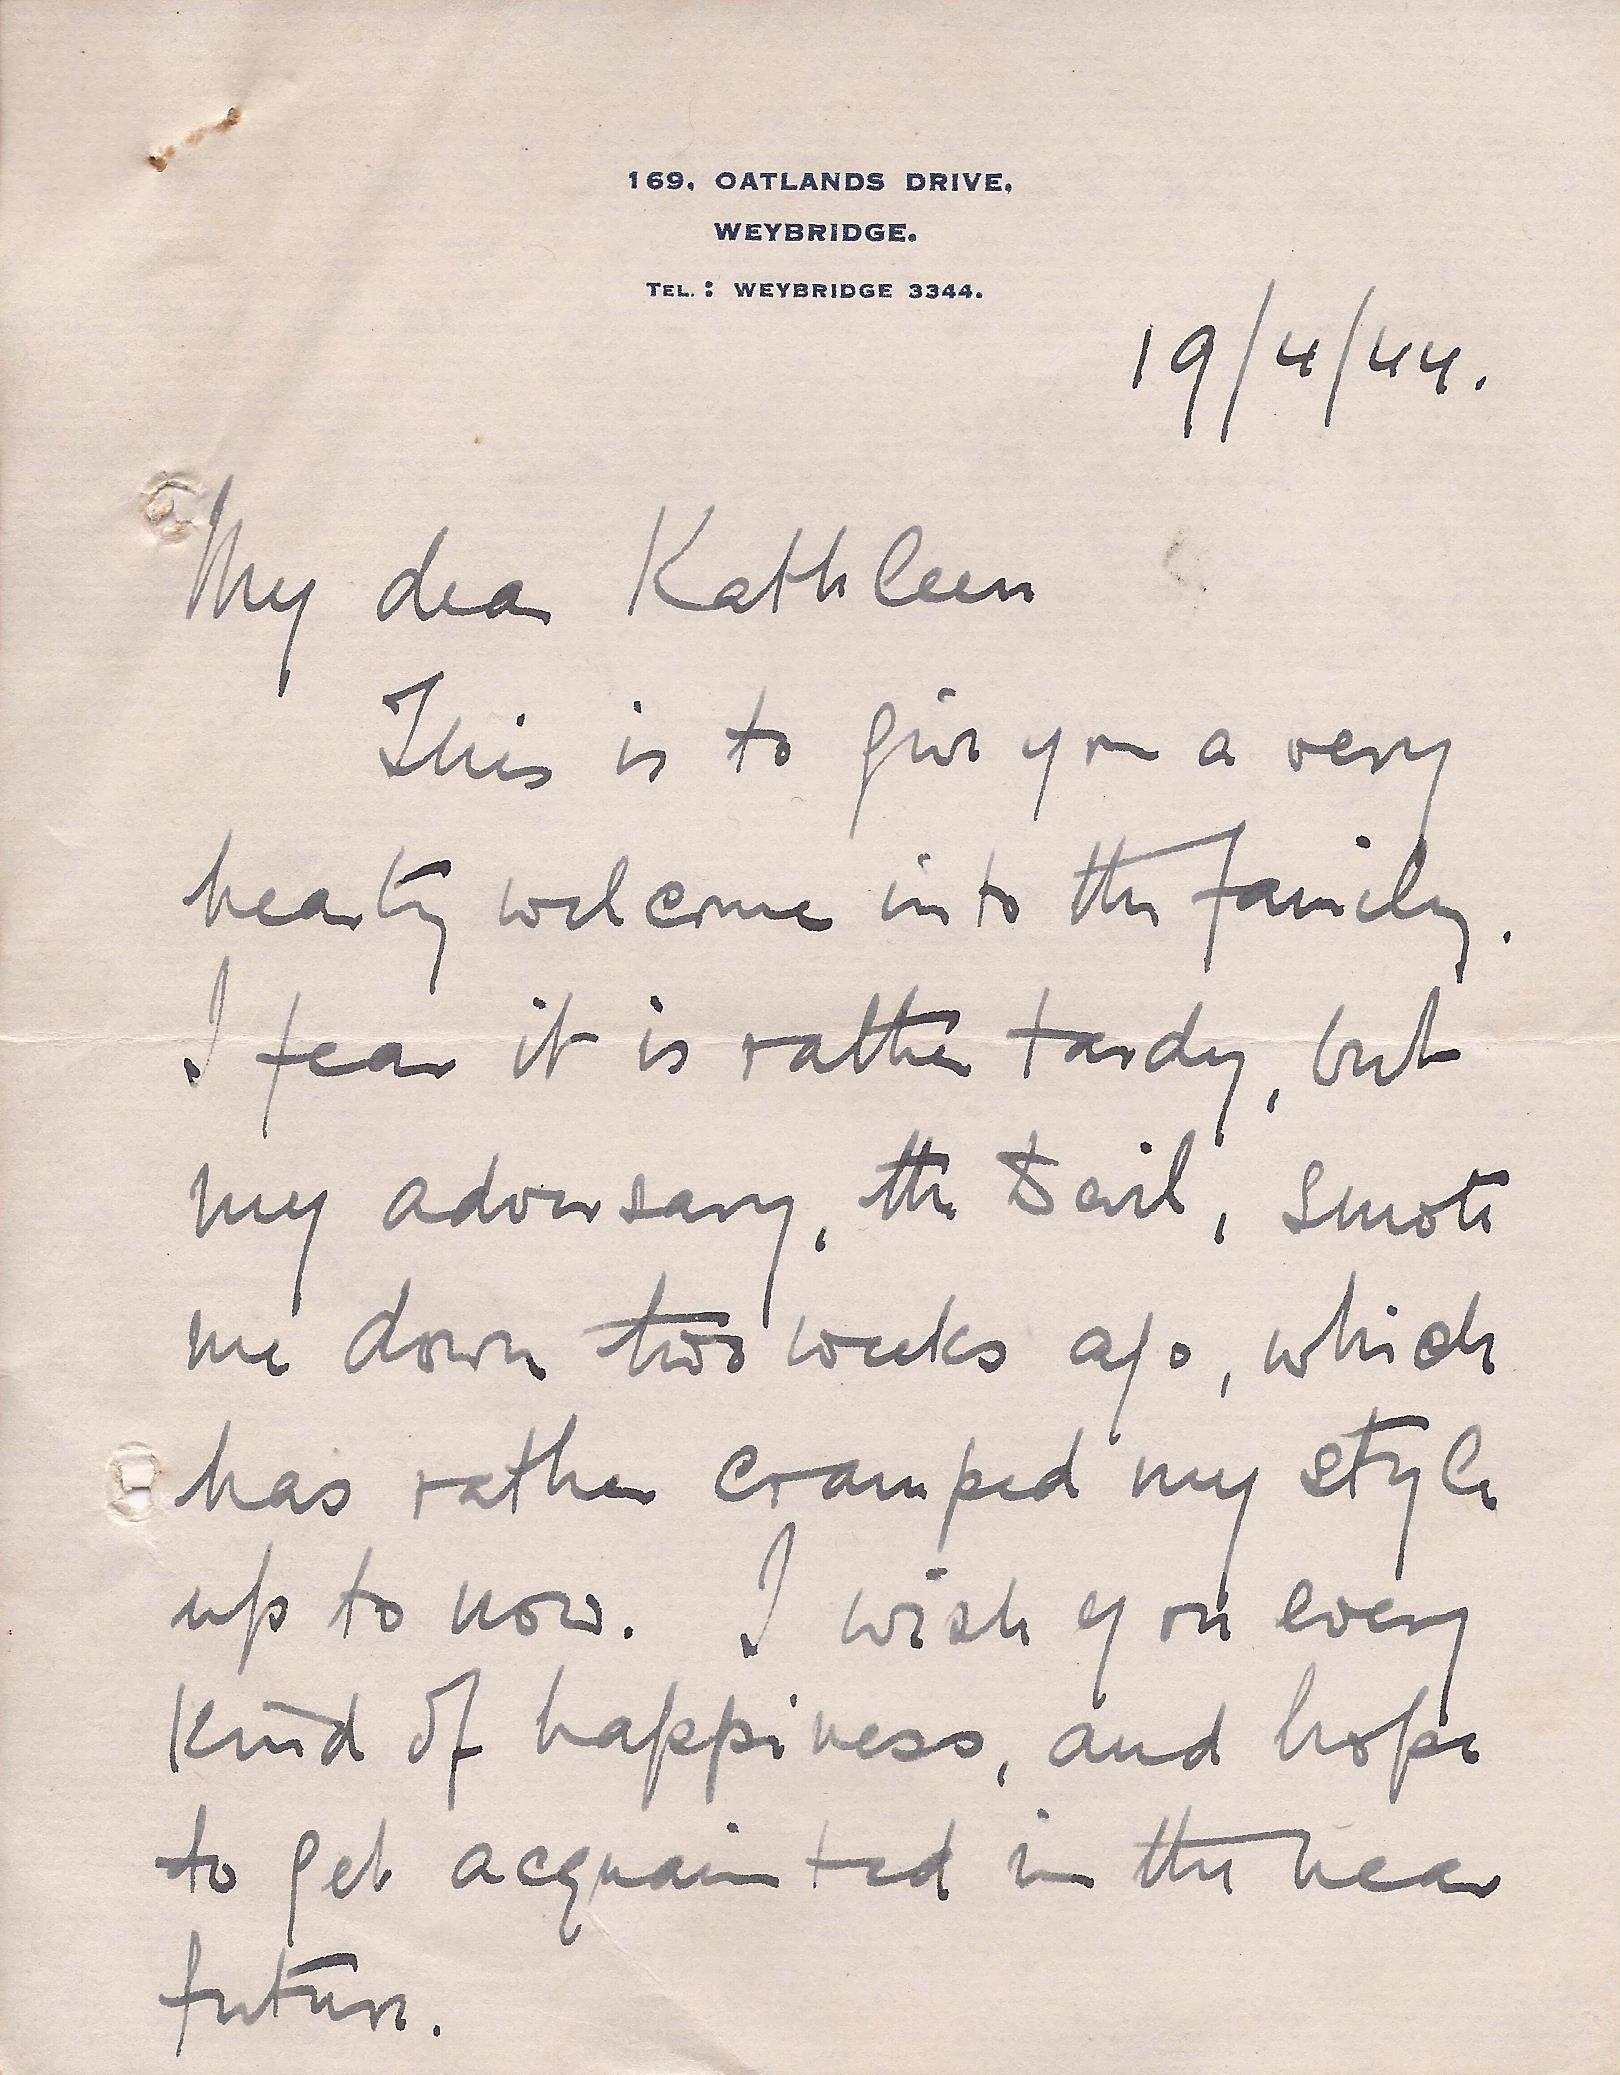 169, OATLANDS DRIVE,
WEYBRIDGE.
TEL.: WEYBRIDGE 3344.
19/4/44.
My dear Kathleen
This is to give you a very
hearty welcome into the family.
I fear it is rather tardy, but
my adversary, the Devil, smote
me down two weeks ago, which
has rather cramped my style
up to now. I wish you every
kind of happiness, and hope
to get acquainted in the near
future.